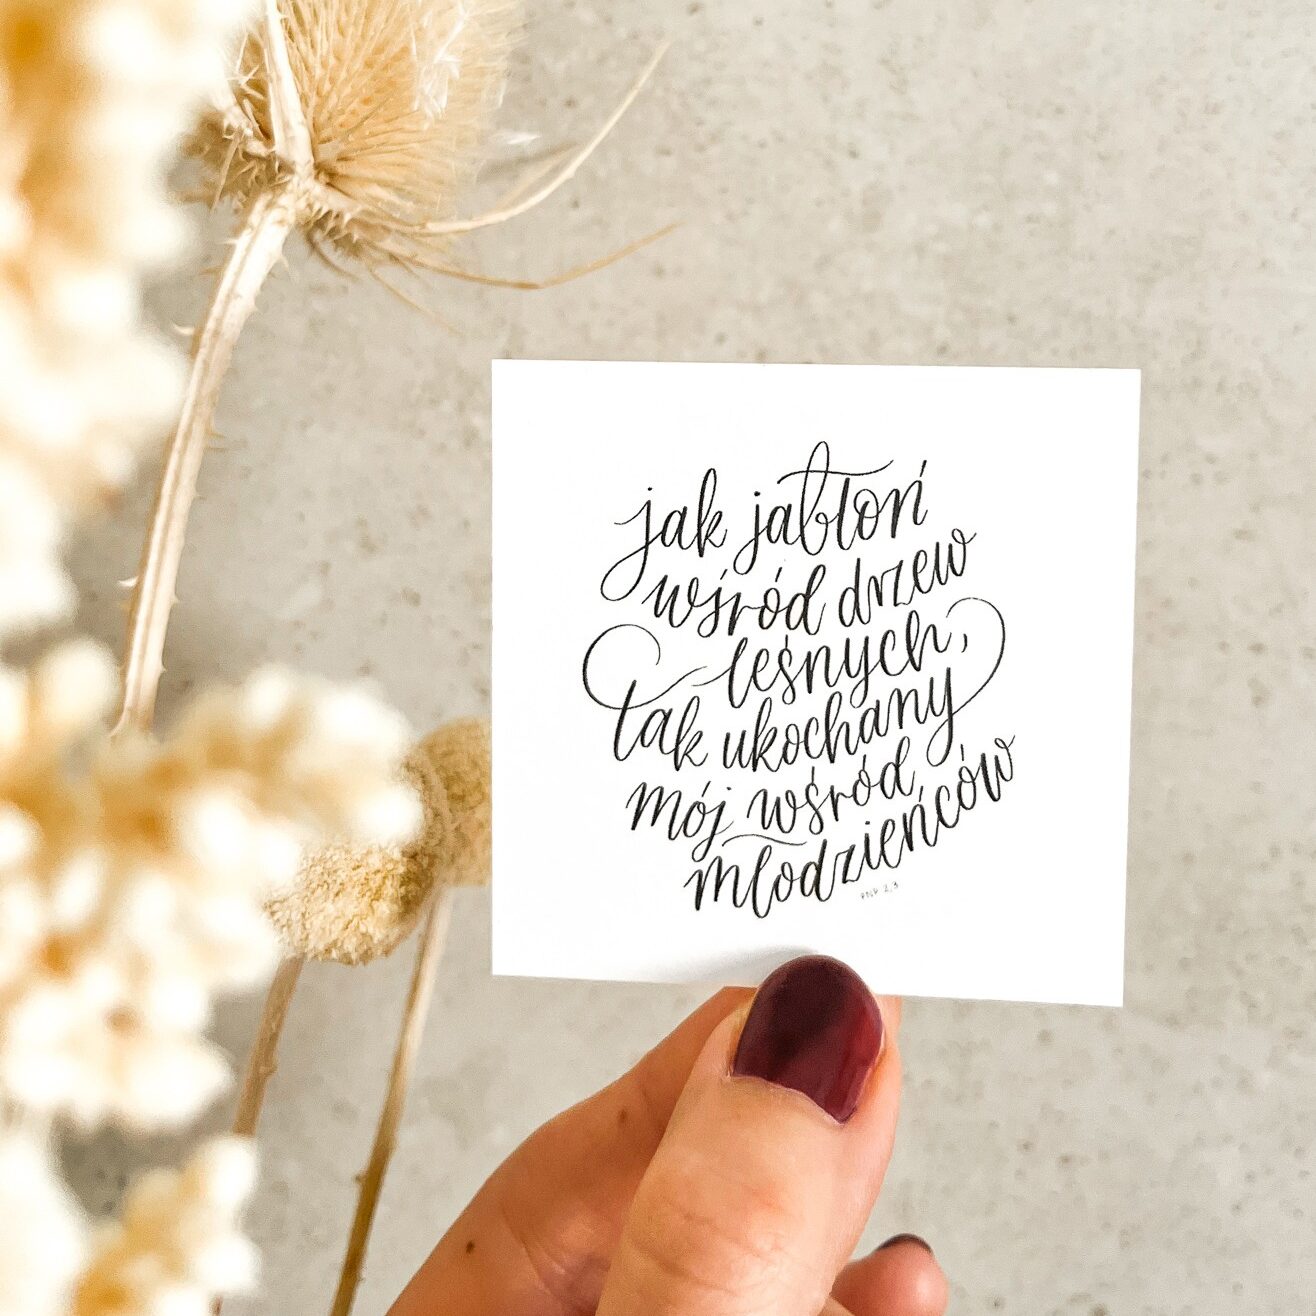 jak jabłoń
wśród drzew
leśnych,
tak ukochany
mój wśród
młodzieńców
PNP 2,3